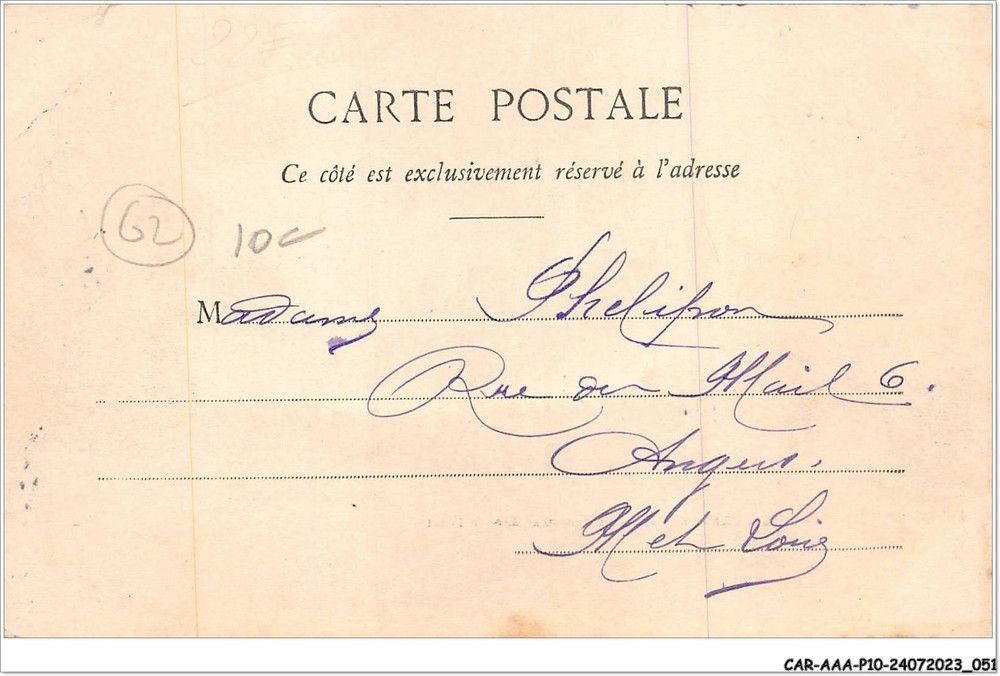 CARTE POSTALE
Ce côté est exclusivement réservé à l'adresse
62 10c
Madame Phelipon
Rue du Mail 6.
Angers.
M et Loire
CAR-AAA-P10-24072023_051